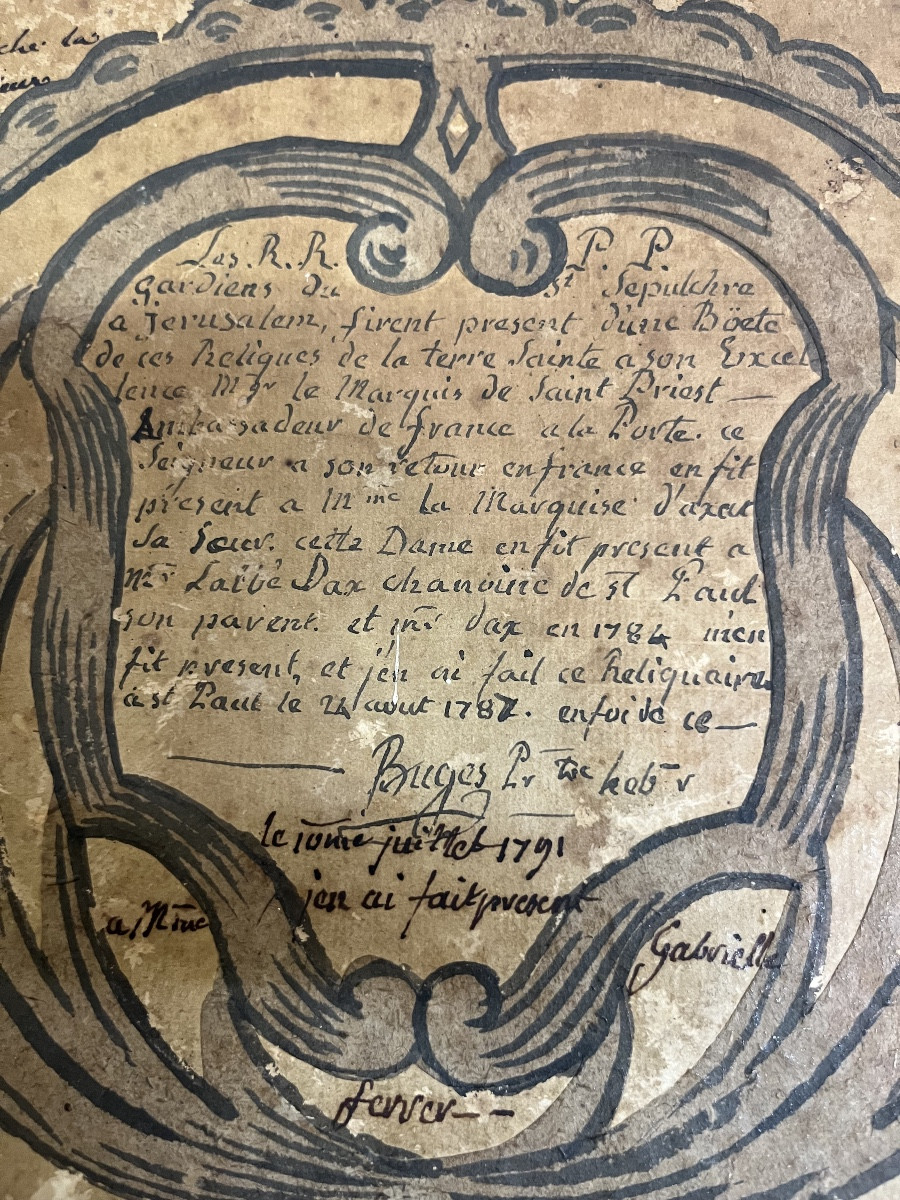 che las
Les. R. R. P. P.
Gardiens du st Sepulchre
a Jerusalem, firent present d'une Böete
de ces Reliques de la terre Sainte a son Excel-
lence Mgr le Marquis de Saint Priest —
Ambassadeur de france a la Porte. ce
Seigneur a son retour en france en fit
présent a Mme la Marquise d'axat
Sa Soeur. cette Dame en fit present a
Mr L'abbé Dax chanoine de st Paul
son parent. et mr dax en 1784 m'en
fit present, et j'en ai fait ce Reliquaire
a st Paul le 24 aout 1787. en foi de ce —
Buges Pr
le 10me juillet 1791
j'en ai fait present
a Mme Gabrielle
ferrer - -